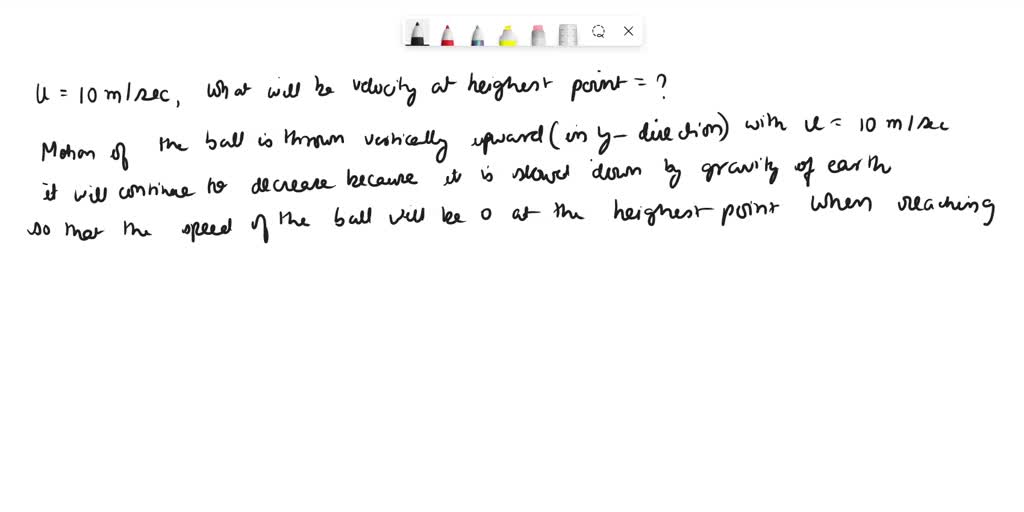 u = 10 m/sec, what will be velocity at heighest point = ?
Motion of the ball is thrown vertically upward (in y-direction) with u = 10 m/sec
it will continue to decrease because it is slowed down by gravity of earth
so that the speed of the ball will be 0 at the heighest point when reaching